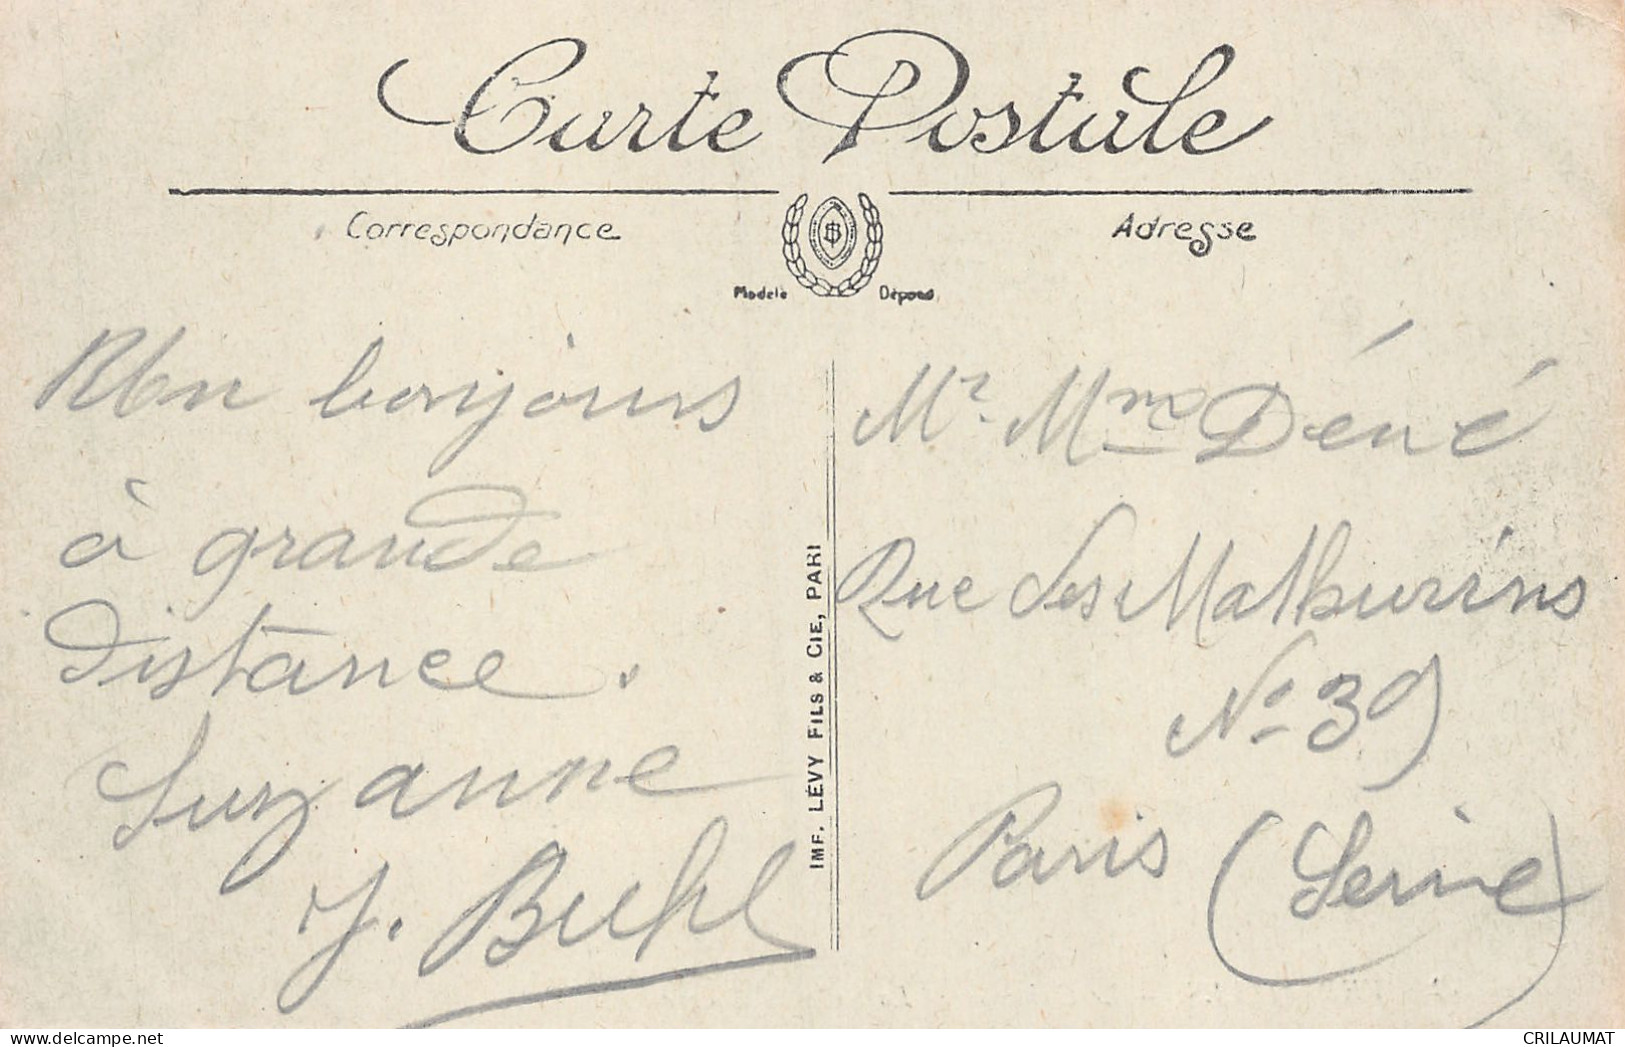 Carte Postale
Correspondance
Adresse
Modèle Déposé
bonjours
à grande
distance.
Suzanne
J. Buhl
IMP. LÉVY FILS & CIE, PARI
Mr. Mme Déné
Rue des Mathurins
No 39
Paris (Seine)
CRILAUMAT